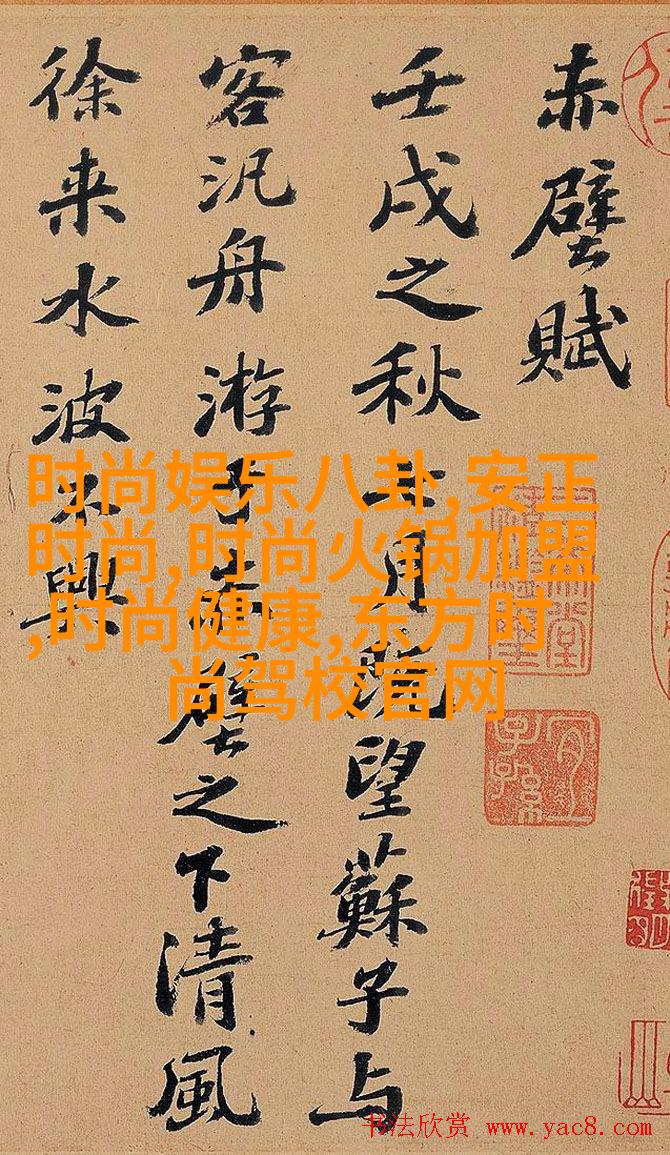 赤壁賦
壬戌之秋七月既望蘇子与
客汎舟游于赤壁之下清風
徐来水波不興
时尚娱乐八卦,安正
时尚,时尚火锅加盟
,时尚健康,东方时
尚驾校官网
书法欣赏 www.yac8.com